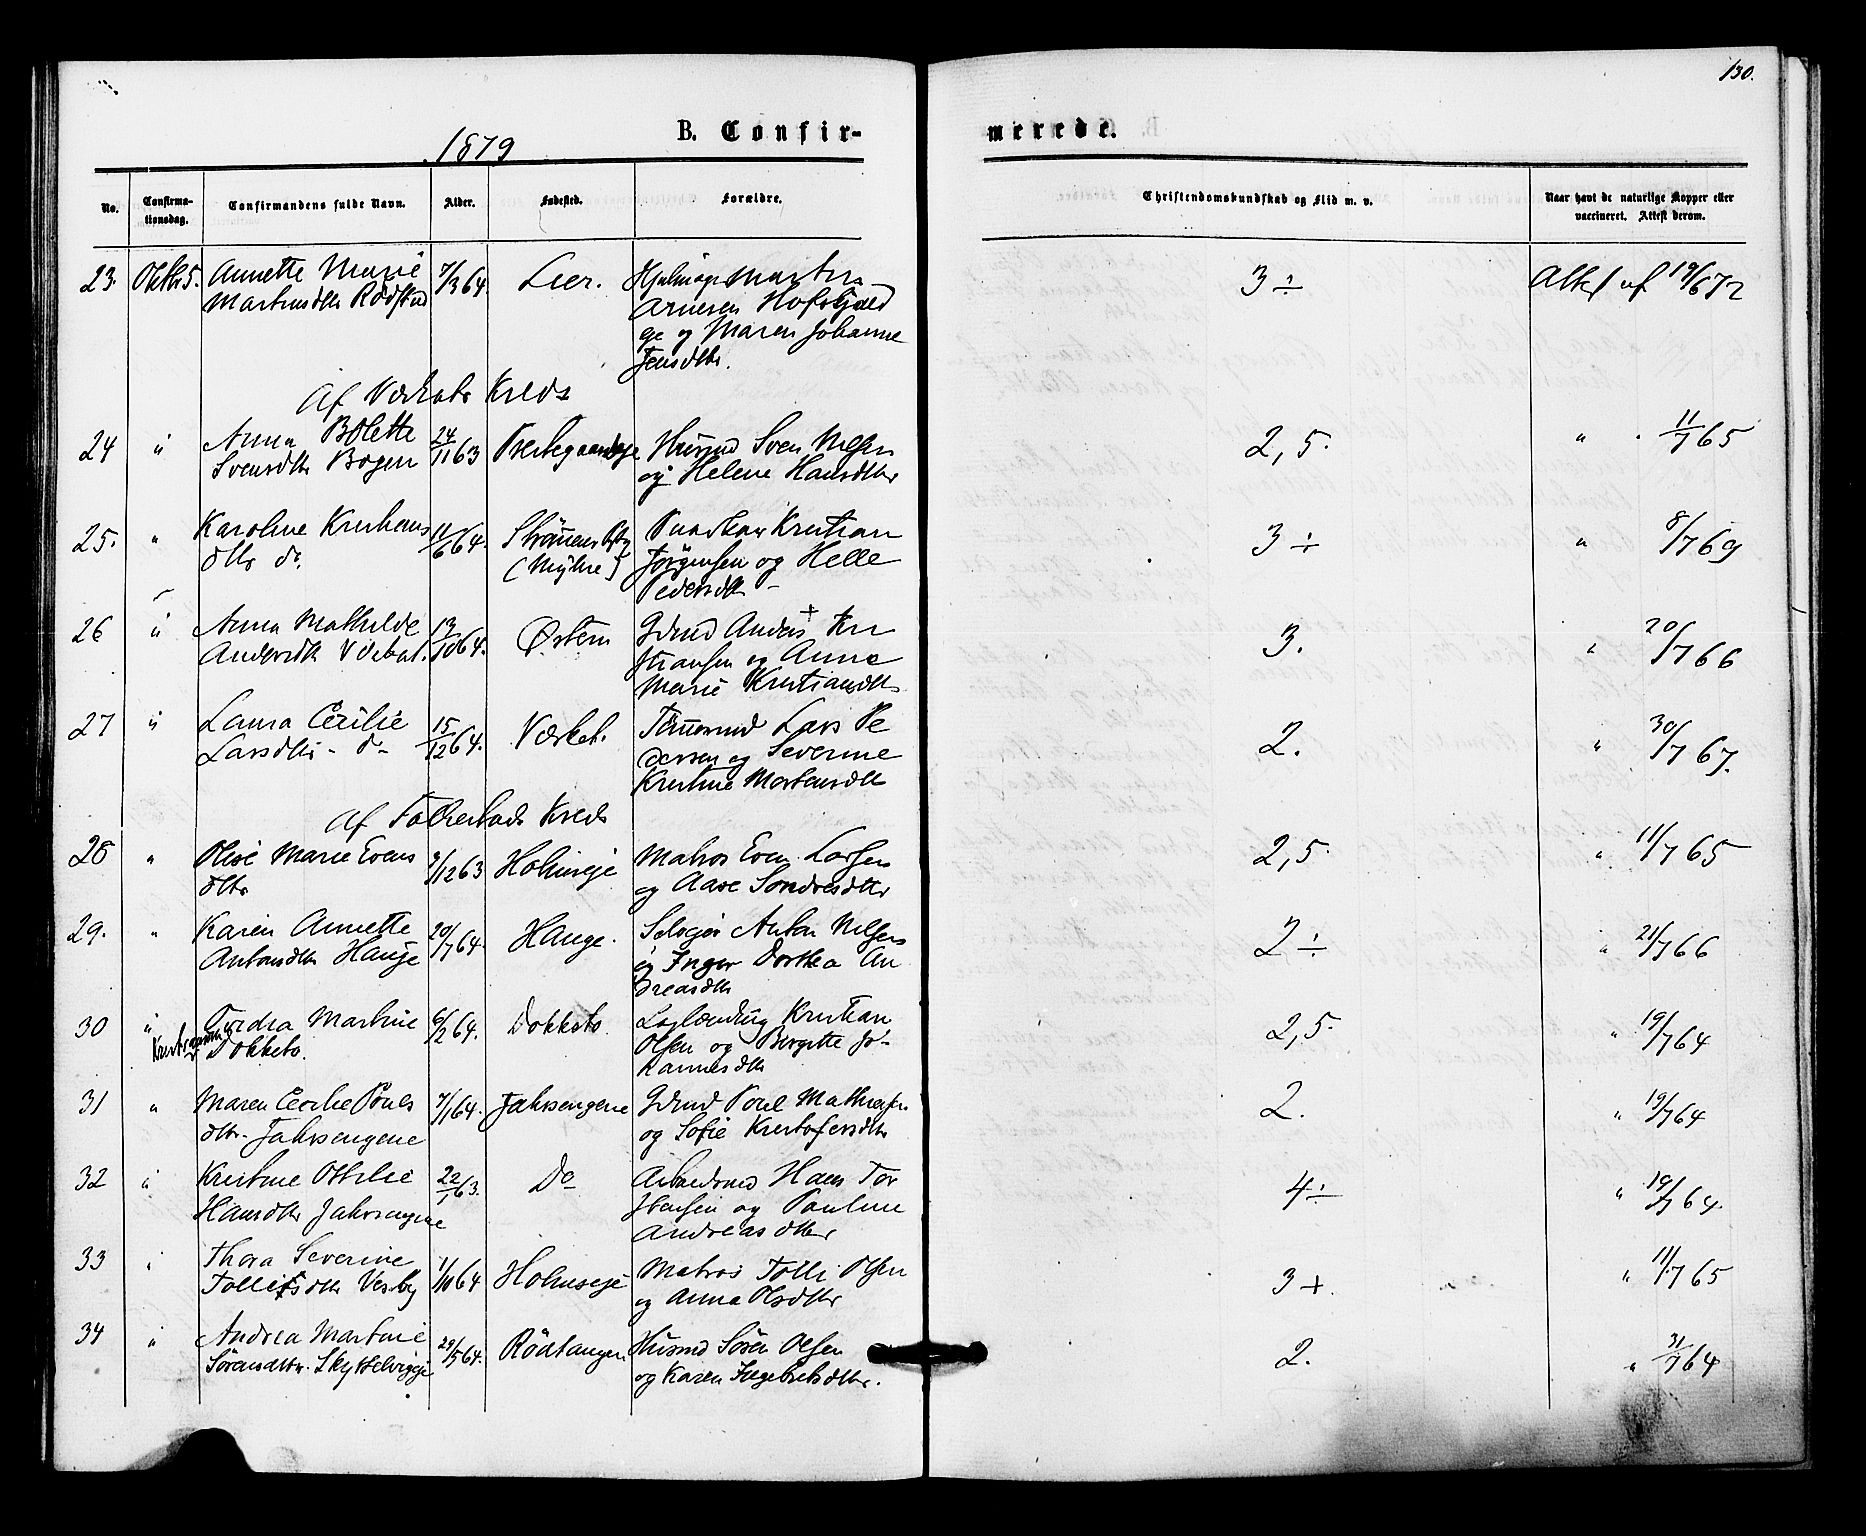 130.
1879 B. Confir- merede.
No. Confirma-tionsdag. Confirmandens fulde Navn. Alder. Fødested. Forældre. Christendomskundskab og Flid m. v. Naar havt de naturlige Kopper eller vaccineret. Attest derom.
23. Oktbr 5. Annette Marie 7/3 64. Lier. 3 ÷ Attest af 19/6 72
Martinsdtr Rødstad
Arnesen
og Maren Johanne
Jensdtr.
Af Værkets Kreds
24 " Anna Bolette 24/11 63 Husmd Sven Nilsen 2,5. " 11/7 65
Svensdtr Bogen og Helene Hansdtr
25. " Karoline Kristians 11/6 64. Kristian 3 ÷ " 8/7 69
dtr do. Jørgensen og Helle
Pedersdtr
26 " Anna Mathilde 13/10 64. Østern Gdmd Anders + Kri 3. " 20/7 66
Andersdtr Værket. stiansen og Anne
Marie Kristiansdtr
27 " Laura Cecilie 15/12 64. Værket. Lars Pe 2. " 30/7 67.
Larsdtr - do - dersen og Severine
Kristine Mortensdtr
Af Tofte Kreds
28 " Marie Evens 9/12 63 Holmseje Matros Even Larsen 2,5. " 11/7 65
dtr og Aase Sondresdtr
29. " Karen Annette 20/7 64. Hauge. Selvejer Anton Nilsen 2 ÷ " 21/7 66
Antonsdtr Hauge og Inger Dorthea An
dreasdtr
30 " Martine 6/2 64. Dokketo. Kristian 2,5. " 19/7 64
Dokketo. Olsen og Birgitte Jo-
hannesdtr
31 " Maren Cecilie Pouls 7/1 64. Jahrsengene Gdmd Poul Mathiesen 2. " 19/7 64
dtr. Jahrsengene og Sofie Kristofersdtr
32 " Kristine Ottilie 22/1 63. Do Arbeidsmd Hans Tor 4 ÷ " 19/7 64.
Hansdtr Jahrsengene stensen og Pauline
Andreasdtr
33 " Thora Severine 1/10 64 Holmseje Matros Tolli Olsen 3 +. " 11/7 65
Tollifsdtr Vestby og Anna Olsdtr
34 " Andrea Martine 29/5 64. Rödtangen Husmd Sören Olsen 2. " 31/7 64
Sörensdtr. og Karen Ingebretsdtr.